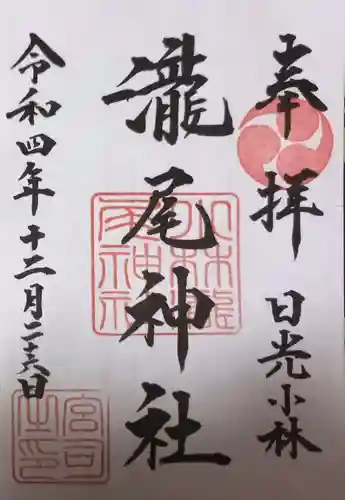 奉拝
日光小林
瀧尾神社
小林瀧尾神社
令和四年十二月二十六日
宮司之印